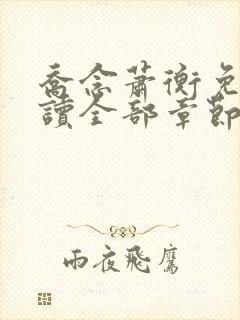 喬念蕭衡免
讀全部章節
雨夜飛鷹